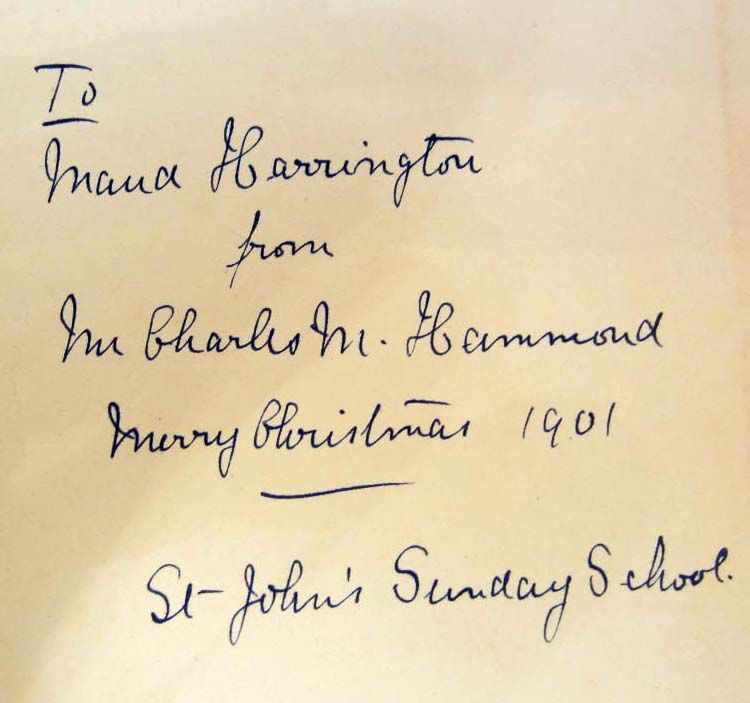 To
Maud Harrington
from
Mr Charles M. Hammond
Merry Christmas 1901
St John's Sunday School.